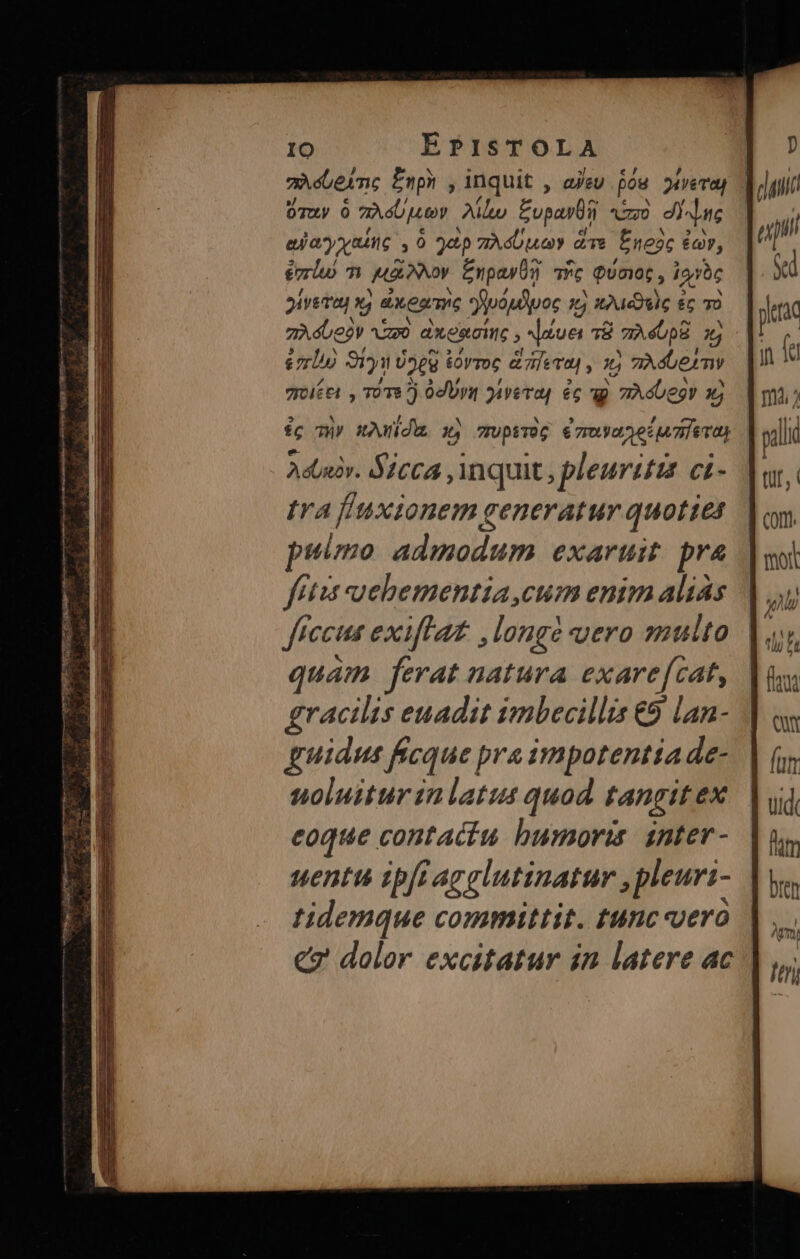 10 EPISTOLA
πλευρῖτις ξηρὴ, inquit, ἄνευ ῥόου γίνεται
ὅταν ὁ πλεύμων λίην ξυρανθῇ ὑπὸ δίψης
ἀναγκαίης, ὁ γὰρ πλεύμων ἅτε ξηρὸς ἐὼν,
ἐπὴν τι μᾶλλον ξηρανθῇ τῆς φύσιος, ἰσχνὸς
γίνεται καὶ ἀκρατὴς γενόμενος καὶ κλιθεὶς ἐς τὸ
πλευρὸν ὑπὸ ἀκρασίης, ψαύει τοῦ πλευροῦ καὶ
ἐπὴν θίγῃ ὑγροῦ ἐόντος ἅπτεται, καὶ πλευρῖτιν
ποιέει, τότε δὲ ὀδύνη γίνεται ἐς τὸ πλευρὸν καὶ
ἐς τὴν κληῖδα καὶ πυρετὸς ἐπαναχρέμπτεται
λευκόν. Sicca, inquit, pleuritis ci-
tra fluxionem generatur quoties
pulmo admodum exaruit præ
sitis vehementia, cum enim aliàs
siccus existat, longè vero multo
quàm ferat natura exarescat,
gracilis euadit imbecillis & lan-
guidus sicque præ impotentia de-
uoluitur in latus quod tangit ex
eoque contactu humoris inter-
uentu ipsi agglutinatur, pleuri-
tidemque committit. tunc verò
& dolor excitatur in latere ac